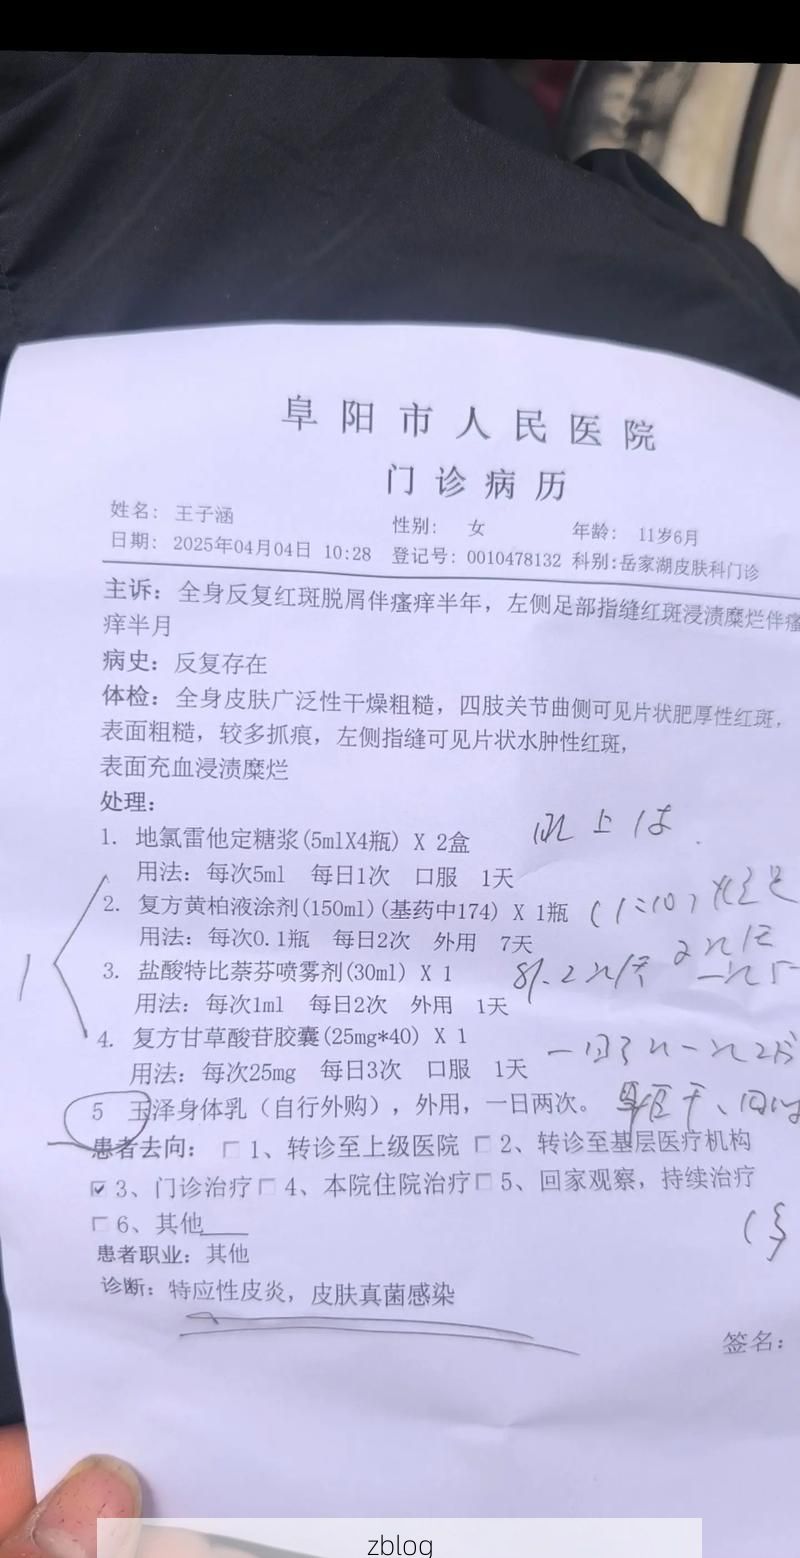 阜阳市人民医院
门诊病历
姓名: 王子涵 性别: 女 年龄: 11岁6月
日期: 2025年04月04日 10:28 登记号: 0010478132 科别:岳家湖皮肤科门诊
主诉: 全身反复红斑脱屑伴瘙痒半年, 左侧足部指缝红斑浸渍糜烂伴瘙
痒半月
病史: 反复存在
体检: 全身皮肤广泛性干燥粗糙, 四肢关节曲侧可见片状肥厚性红斑,
表面粗糙, 较多抓痕, 左侧指缝可见片状水肿性红斑,
表面充血浸渍糜烂
处理:
1. 地氯雷他定糖浆(5mlX4瓶) X 2盒
用法: 每次5ml 每日1次 口服 1天
2. 复方黄柏液涂剂(150ml)(基药中174) X 1瓶
用法: 每次0.1瓶 每日2次 外用 7天
3. 盐酸特比萘芬喷雾剂(30ml) X 1
用法: 每次1ml 每日2次 外用 1天
4. 复方甘草酸苷胶囊(25mg*40) X 1
用法: 每次25mg 每日3次 口服 1天
5 玉泽身体乳（自行外购）, 外用, 一日两次。
患者去向: □ 1、转诊至上级医院 □ 2、转诊至基层医疗机构
☑ 3、门诊治疗 □ 4、本院住院治疗 □ 5、回家观察, 持续治疗
□ 6、其他___
患者职业: 其他
诊断: 特应性皮炎, 皮肤真菌感染
签名:
zblog